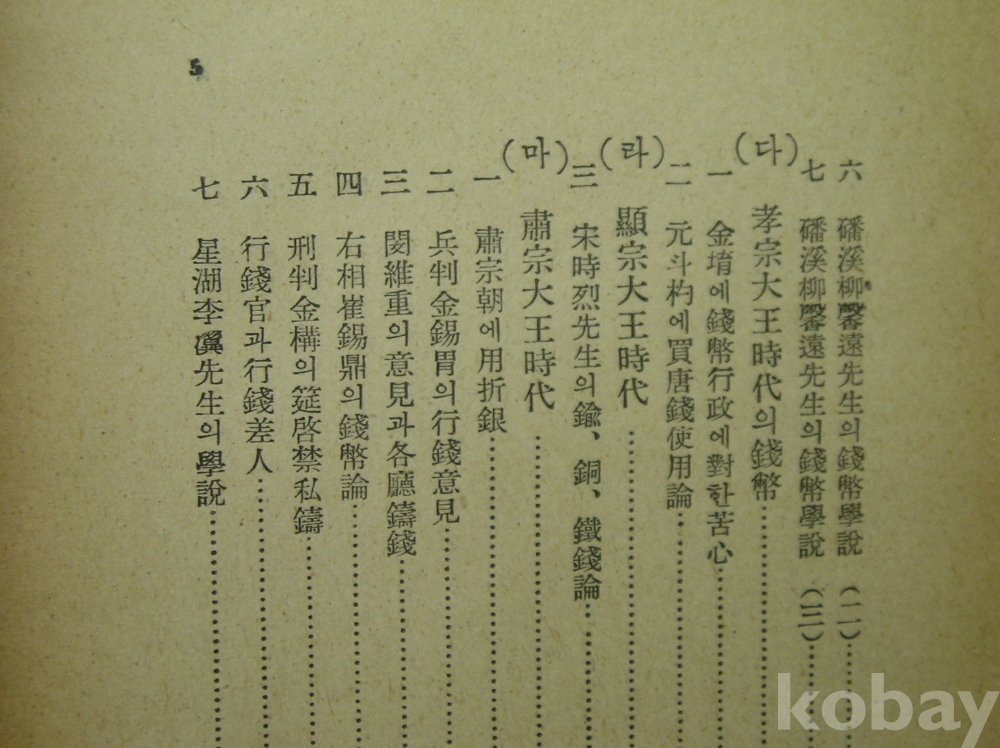 六 磻溪柳馨遠先生의錢幣學說 (二)
七 磻溪柳馨遠先生의錢幣學說 (三)
(다) 孝宗大王時代의錢幣
一 金堉에錢幣行政에對한苦心
二 元斗杓에買唐錢使用論
(라) 顯宗大王時代
三 宋時烈先生의鍮、銅、鐵錢論
(마) 肅宗大王時代
一 肅宗朝에用折銀
二 兵判金錫胃의行錢意見
三 閔維重의意見과各廳鑄錢
四 右相崔錫鼎의錢幣論
五 刑判金構의筵啓禁私鑄
六 行錢官과行錢差人
七 星湖李瀷先生의學說
5
kobay